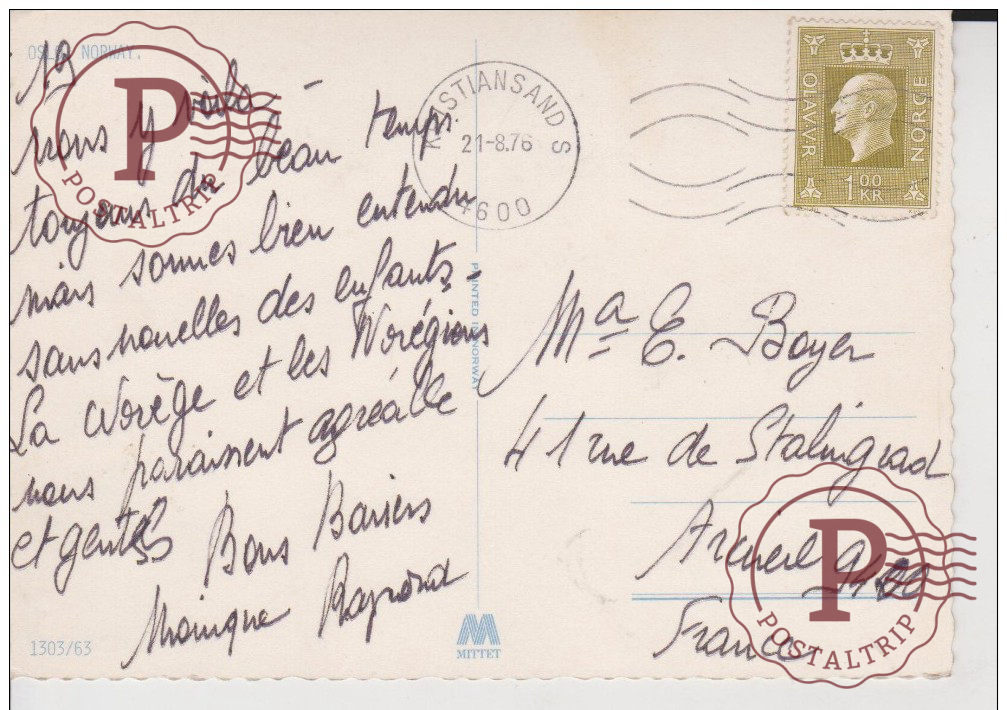 OSLO, NORWAY.
19
nous y voilà -
toujours du beau temps
mais sommes bien entendu
sans nouvelles des enfants -
La Norège et les Norégiens
nous paraissent agréable
et gentils
Bons Baisers
Monique Raymond
1303/63
KRISTIANSAND S
21-8.76
4600
OLAV VR
NORGE
1 00
KR
PRINTED IN NORWAY
MITTET
Ma E. Boyer
41 rue de Stalingrad
Arcueil
France
P
POSTALTRIP
P
POSTALTRIP